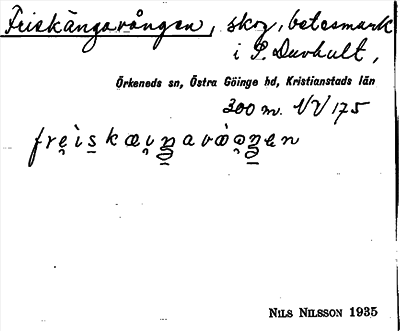 Freiskängavången, skog, betesmark
i S. Duvhult,
Örkeneds sn, Östra Göinge hd, Kristianstads län
300 m. NV 175
NILS NILSSON 1935